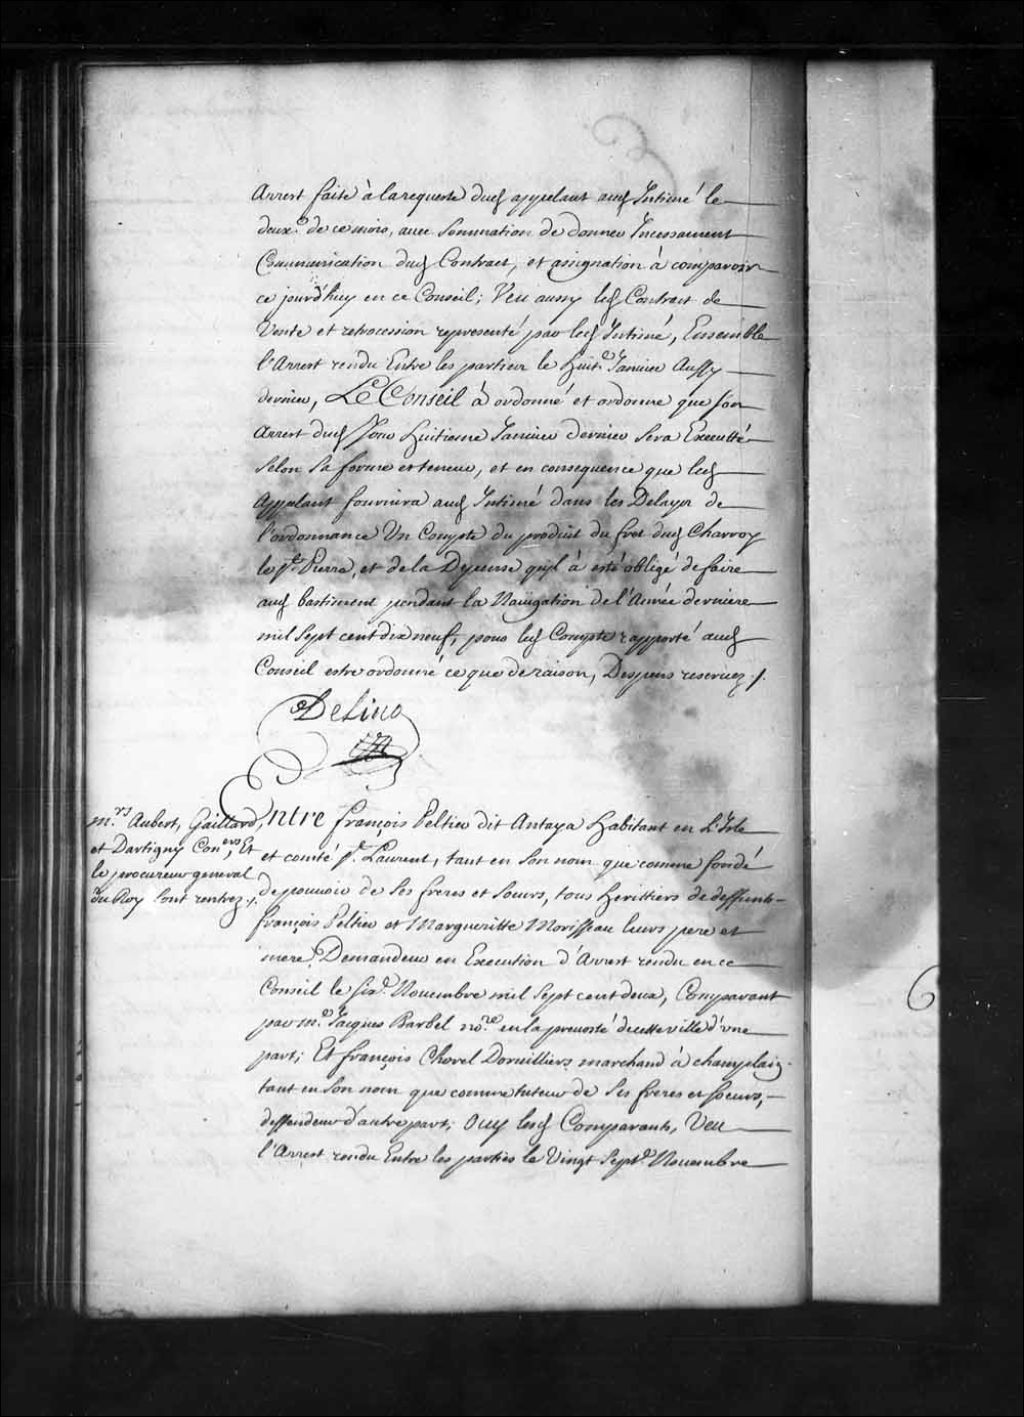 Arrest faite à la requeste dud appelant aud Intimé le
deuxe. de ce mois, avec sommation de donner Incessament
Communication dud Contract, et assignation à comparoir
ce jourd'huy en ce Conseil; Veu aussy led Contract de
Vente et retrocession representé par led Intimé, Ensemble
l'Arrest rendu Entre les parties le huite. Janvier Aussy
dernier, Le Conseil à ordonné et ordonne que son
Arrest dud Jour huitieme Janvier dernier sera Executté
selon sa forme et teneur, et en consequence que led
Appelant fournira aud Intimé dans les Delays de
l'ordonnance Un Compte du produit du fret dud Charroy
le st. Pierre, et de la Depense qu'il à esté obligé de faire
aud bastiment pendant la Navigation de l'Année derniere
mil Sept cent dix neuf, pour led Compte rapporté aud
Conseil estre ordonné ce que de raison, Despens reservez ./.
DeLino
mrs Aubert, Gaillard,
et Dartigny Coners, Et
le procureur general
du Roy sont rentrez ./.
Entre françois Peltier dit Antaya habitant en L'Isle
et comté st. Laurent, tant en son nom que comme fondé
de pouvoir de ses freres et soeurs, tous heritiers de deffunts
françois Peltier et Margueritte Morisseau leurs pere et
mere, Demandeur en Execution d'Arrest rendu en ce
Conseil le sixe. Novembre mil Sept cent deux, Comparant
par me. Jacques Barbel nore. en la prevosté de cette ville d'une
part; Et françois Chorel Dorvilliers marchand à champlain
tant en son nom que comme tuteur de ses freres et soeurs,
deffendeur d'autre part; Ouy lesd Comparants, Veu
l'Arrest rendu Entre les parties le Vingt Septe. Novembre